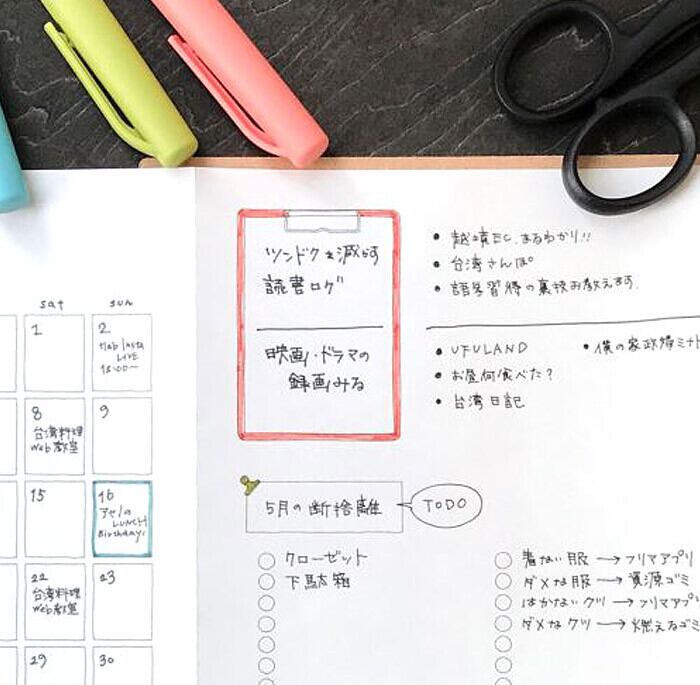 sat sun
1
2
Hab Insta
LIVE
18:00〜
8
台湾料理
Web教室
9
15
16
LUNCH
Birthday!
22
台湾料理
Web教室
23
29
30
ツンドクを減らす
読書ログ
映画・ドラマの
録画みる
• 越境EC、まるわかり!!
• 台湾さんぽ
• 語学習得の裏技お教えます.
• UFULAND
• 僕の家政婦ミナト
• お昼何食べた?
• 台湾日記
5月の断捨離
TODO
クローゼット
下駄箱
着ない服 → フリマアプリ
ダメな服 → 資源ゴミ
はかないクツ → フリマアプ
ダメなクツ → 燃えるゴミ